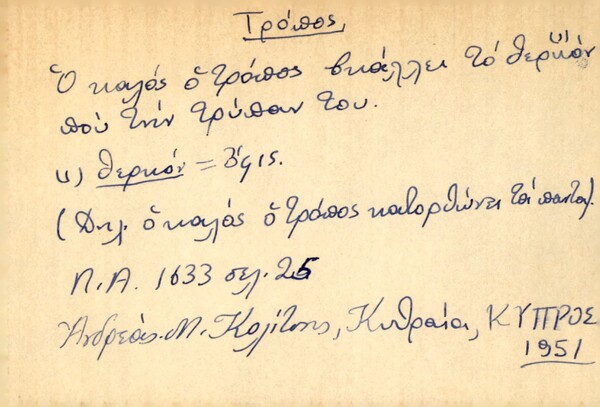 Τρόπος
Ὁ καλός ὁ τρόπος βκάλλει τό θερκόν
πού τήν τρύπαν του.
υ) θερκόν = ὄφις.
(Δηλ. ὁ καλός ὁ τρόπος κατορθώνει τά πάντα).
Λ.Α. 1633 σελ. 25
Ἀνδρέας Μ. Κολίτσης, Κυθραία, ΚΥΠΡΟΣ
1951